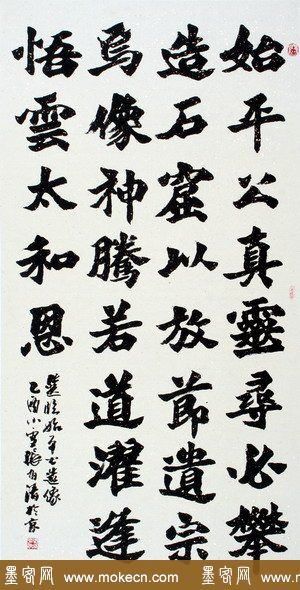 始平公真靈尋必攀
造石窟以放節遺宗
像神騰若道濯逢
悟雲太和恩
選臨始平公造像
乙酉小雪於京
墨客网 www.mokecn.com 墨客网